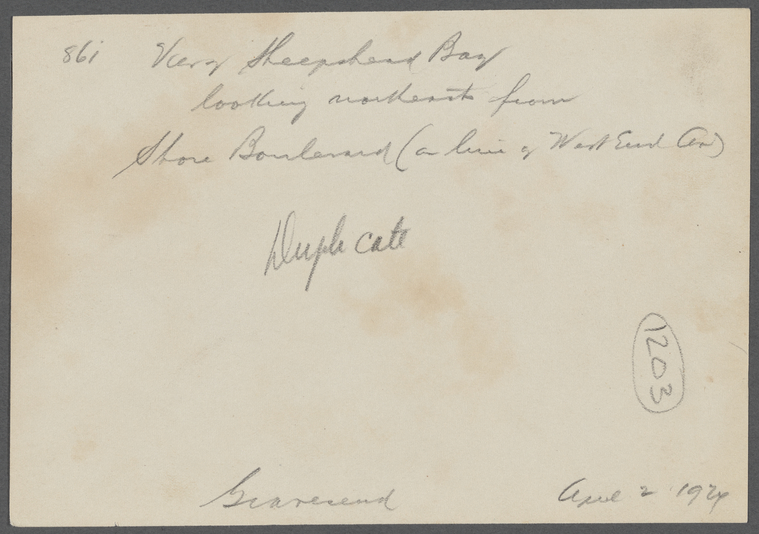 861 View of Sheepshead Bay
looking northeast from
Shore Boulevard (on line of West End Av)
Duplicate
1203
Gravesend April 2 1924